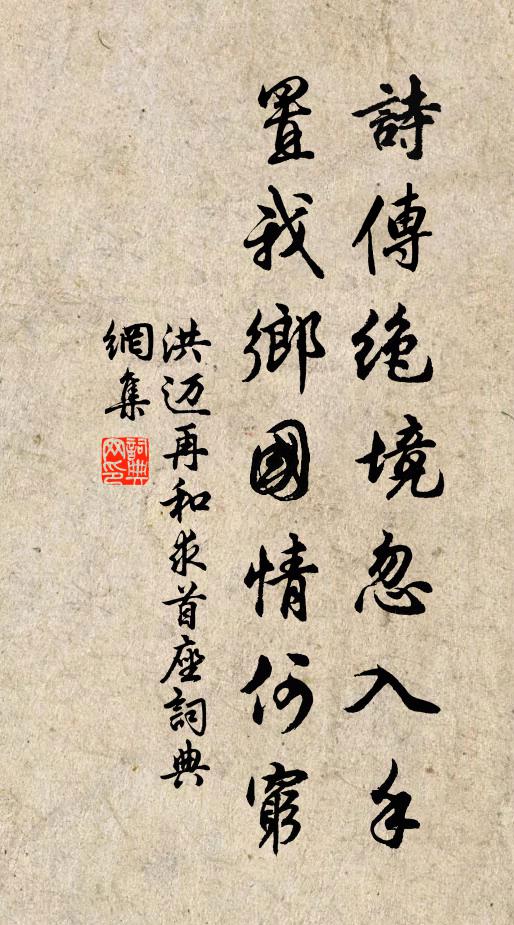 詩傳絶境忽入手
置我鄉國情何窮
洪迈再和求首座詞典
網集
詞典網印